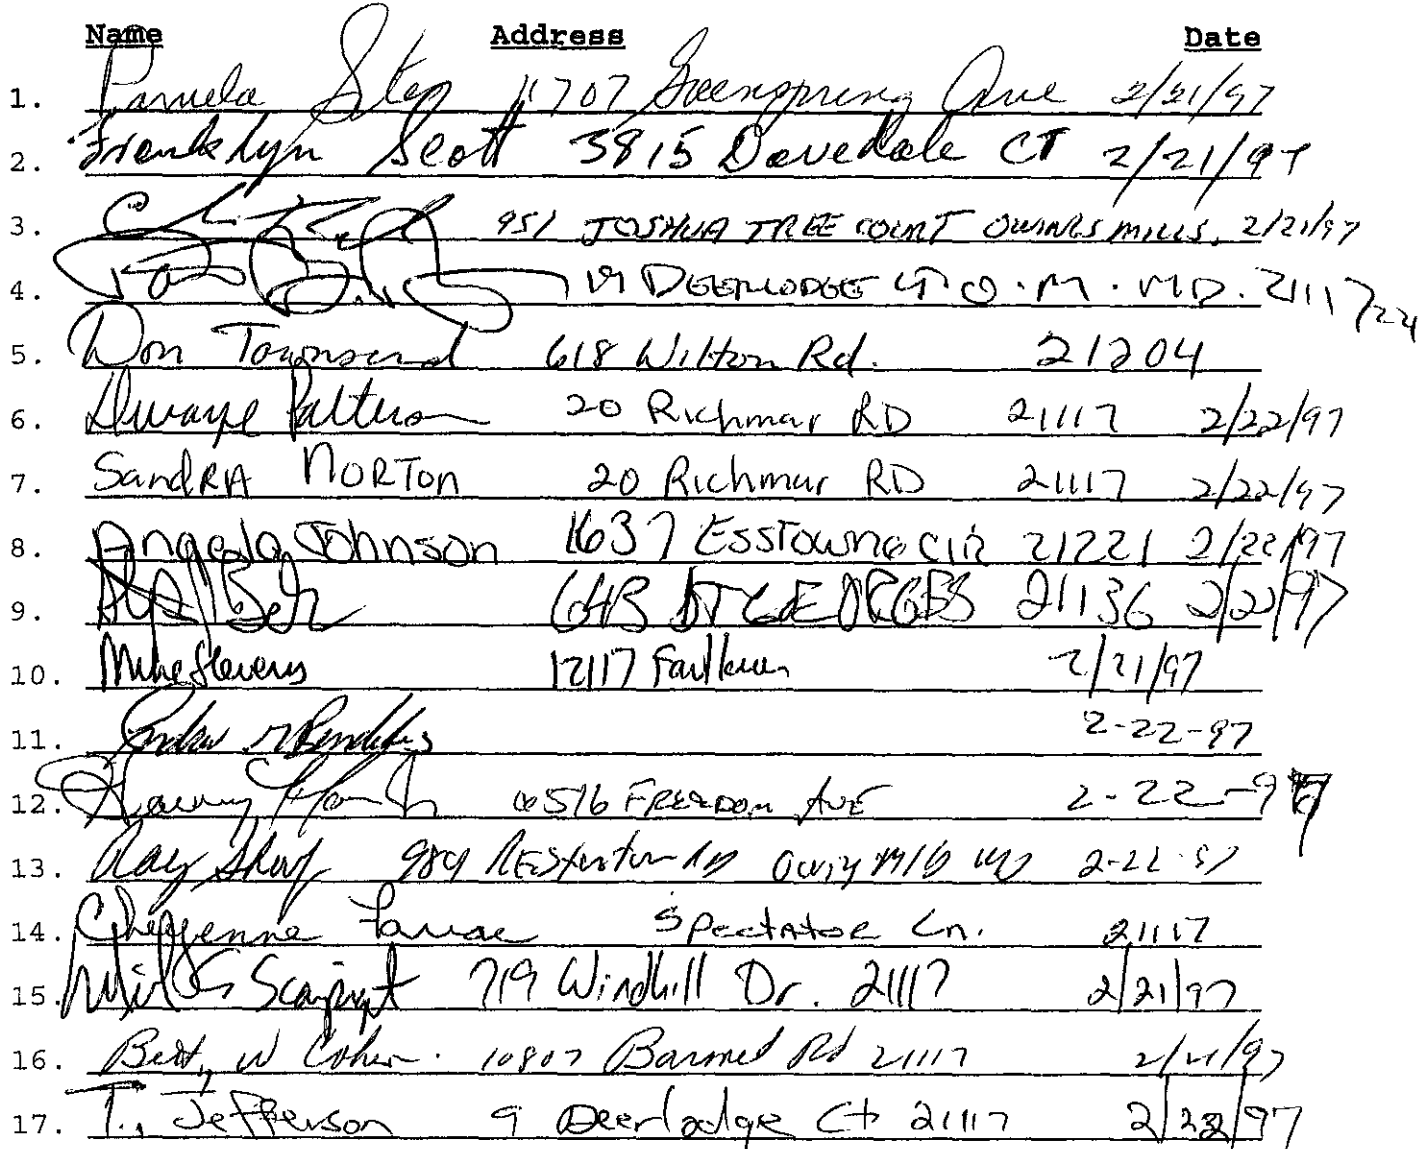 Name Address Date
1. Pamela 11707 Greenspring Ave 2/21/97
2. Franklyn Scott 3815 Dovedale CT 2/21/97
3. 951 JOSHUA TREE COURT OWINGS MILLS, 2/21/97
4. 19 DEERLODGE CT O.M. MD. 21117
5. Don Townsend 618 Wilton Rd. 21204
6. Dwayne Patterson 20 Richmar RD 21117 2/22/97
7. SandRA NORTON 20 Richmar RD 21117 2/22/97
8. Angela Johnson 1637 ESSTowne CIR 21221 2/22/97
9. 643 ST GEORGES 21136 2/22/97
10. Mike Stevens 12117 Faulkner 2/21/97
11. 2-22-97
12. 6516 FREEDOM AVE 2-22-97
13. Ray 989 Owings Mills MD 2-22-97
14. Cheyenne Spectator Ln. 21117
15. 719 Windhill Dr. 21117 2/21/97
16. Betty W Cohen 10807 Barmel Rd 21117 2/21/97
17. T. Jefferson 9 Deerlodge Ct 21117 2/22/97